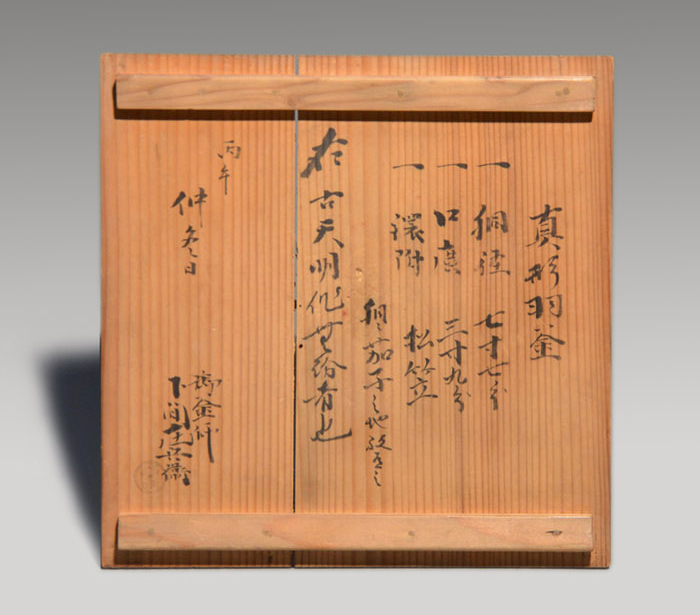 真形羽釜
一 胴径 七寸七分
一 口広 三寸九分
一 鐶附 松笠
胴茄子之地紋有之
右古天明作無紛者也
丙午
仲冬日
御釜師
下間庄兵衛